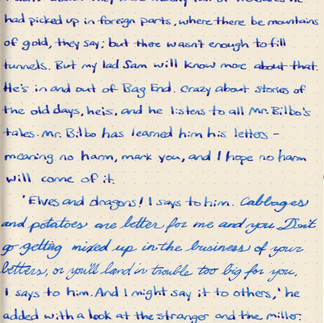 had picked up in foreign parts, where there be mountains
of gold, they say; but there wasn't enough to fill
tunnels. But my lad Sam will know more about that.
He's in and out of Bag End. Crazy about stories of
the old days, he is, and he listens to all Mr. Bilbo's
tales. Mr. Bilbo has learned him his letters -
meaning no harm, mark you, and I hope no harm
will come of it.
'Elves and dragons! I says to him. Cabbages
and potatoes are better for me and you. Don't
go getting mixed up in the business of your
betters, or you'll land in trouble too big for you,
I says to him. And I might say it to others,' he
added with a look at the stranger and the miller.